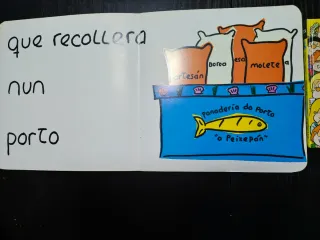 que recollera
nun
porto
artesán
Boroa
esa
molete
panadería do porto
"o Peixepán"